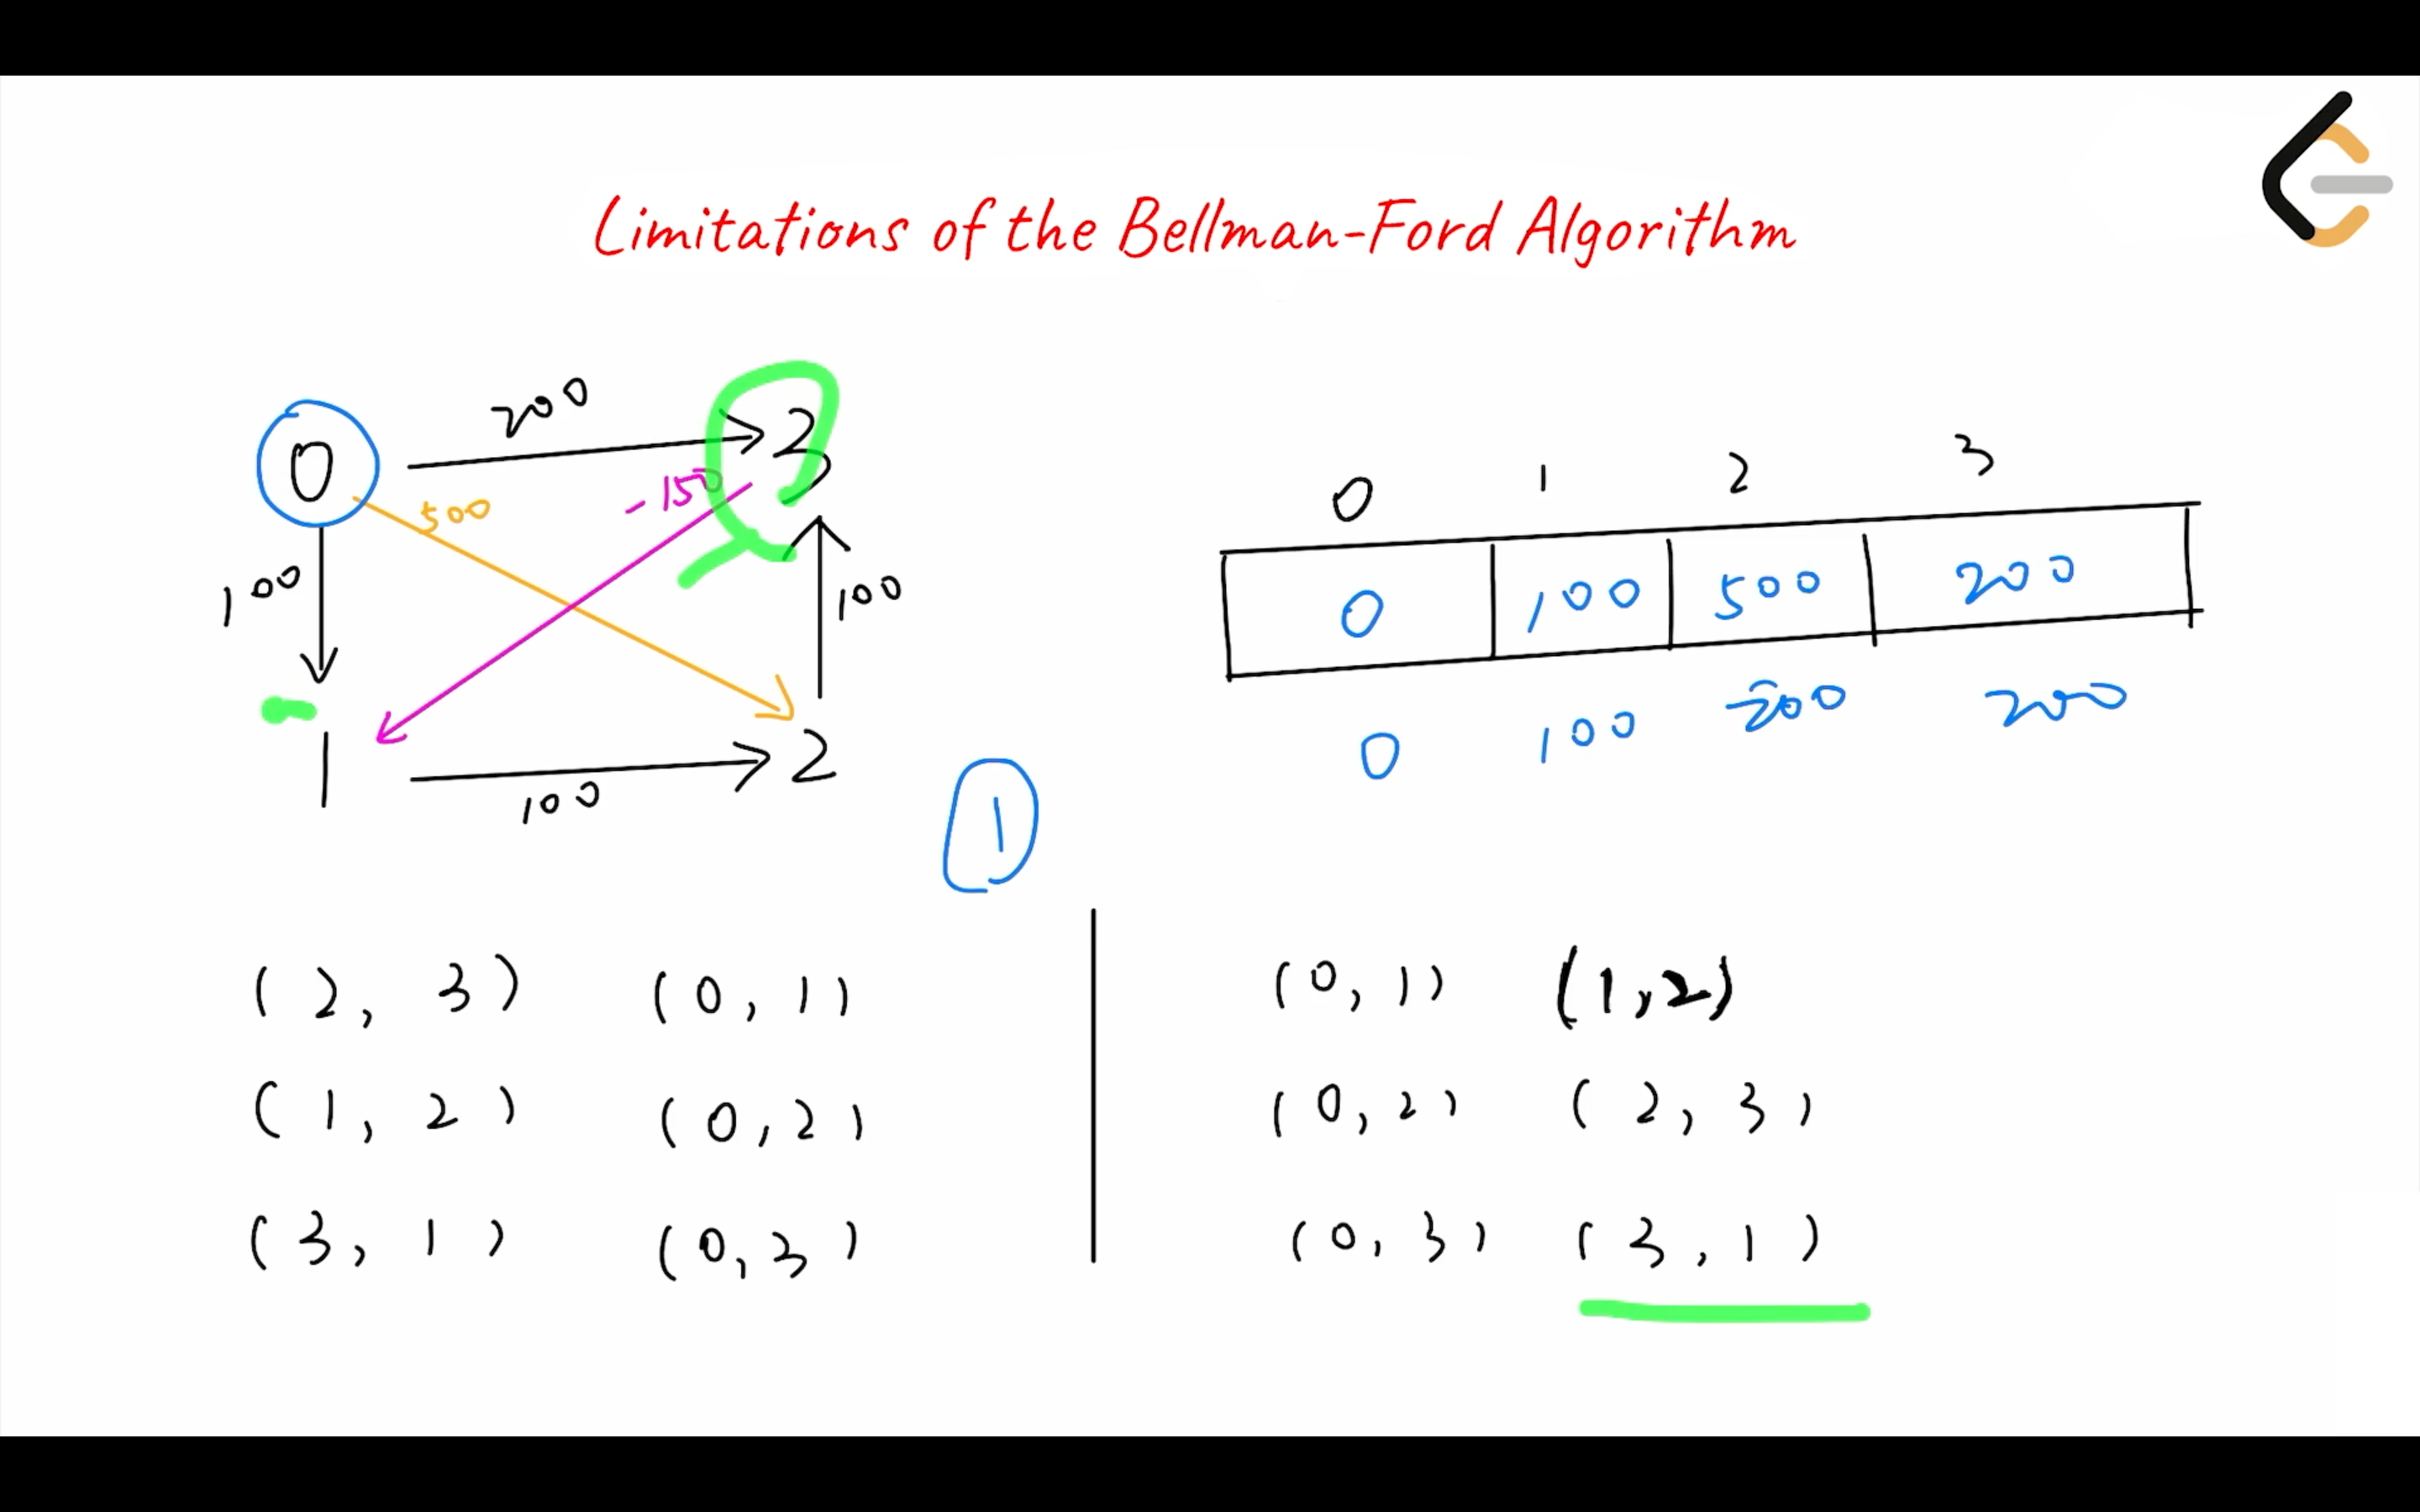 Limitations of the Bellman-Ford Algorithm
0 200 3
-150
500
100 100
1 100 2
1
0 1 2 3
0 100 500 200
0 100 200 200
(2, 3) (0, 1)
(1, 2) (0, 2)
(3, 1) (0, 3)
(0, 1) (1, 2)
(0, 2) (2, 3)
(0, 3) (3, 1)